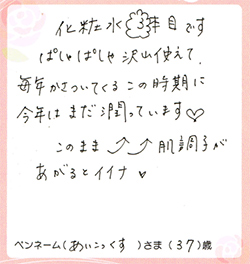 化粧水3本目です
ぱしゃぱしゃ沢山使えて、
毎年かさついてくるこの時期に
今年はまだ潤っています♡
このまま⤴⤴肌調子が
あがるとイイナ♥
ペンネーム(あいこっくす)さま(37)歳